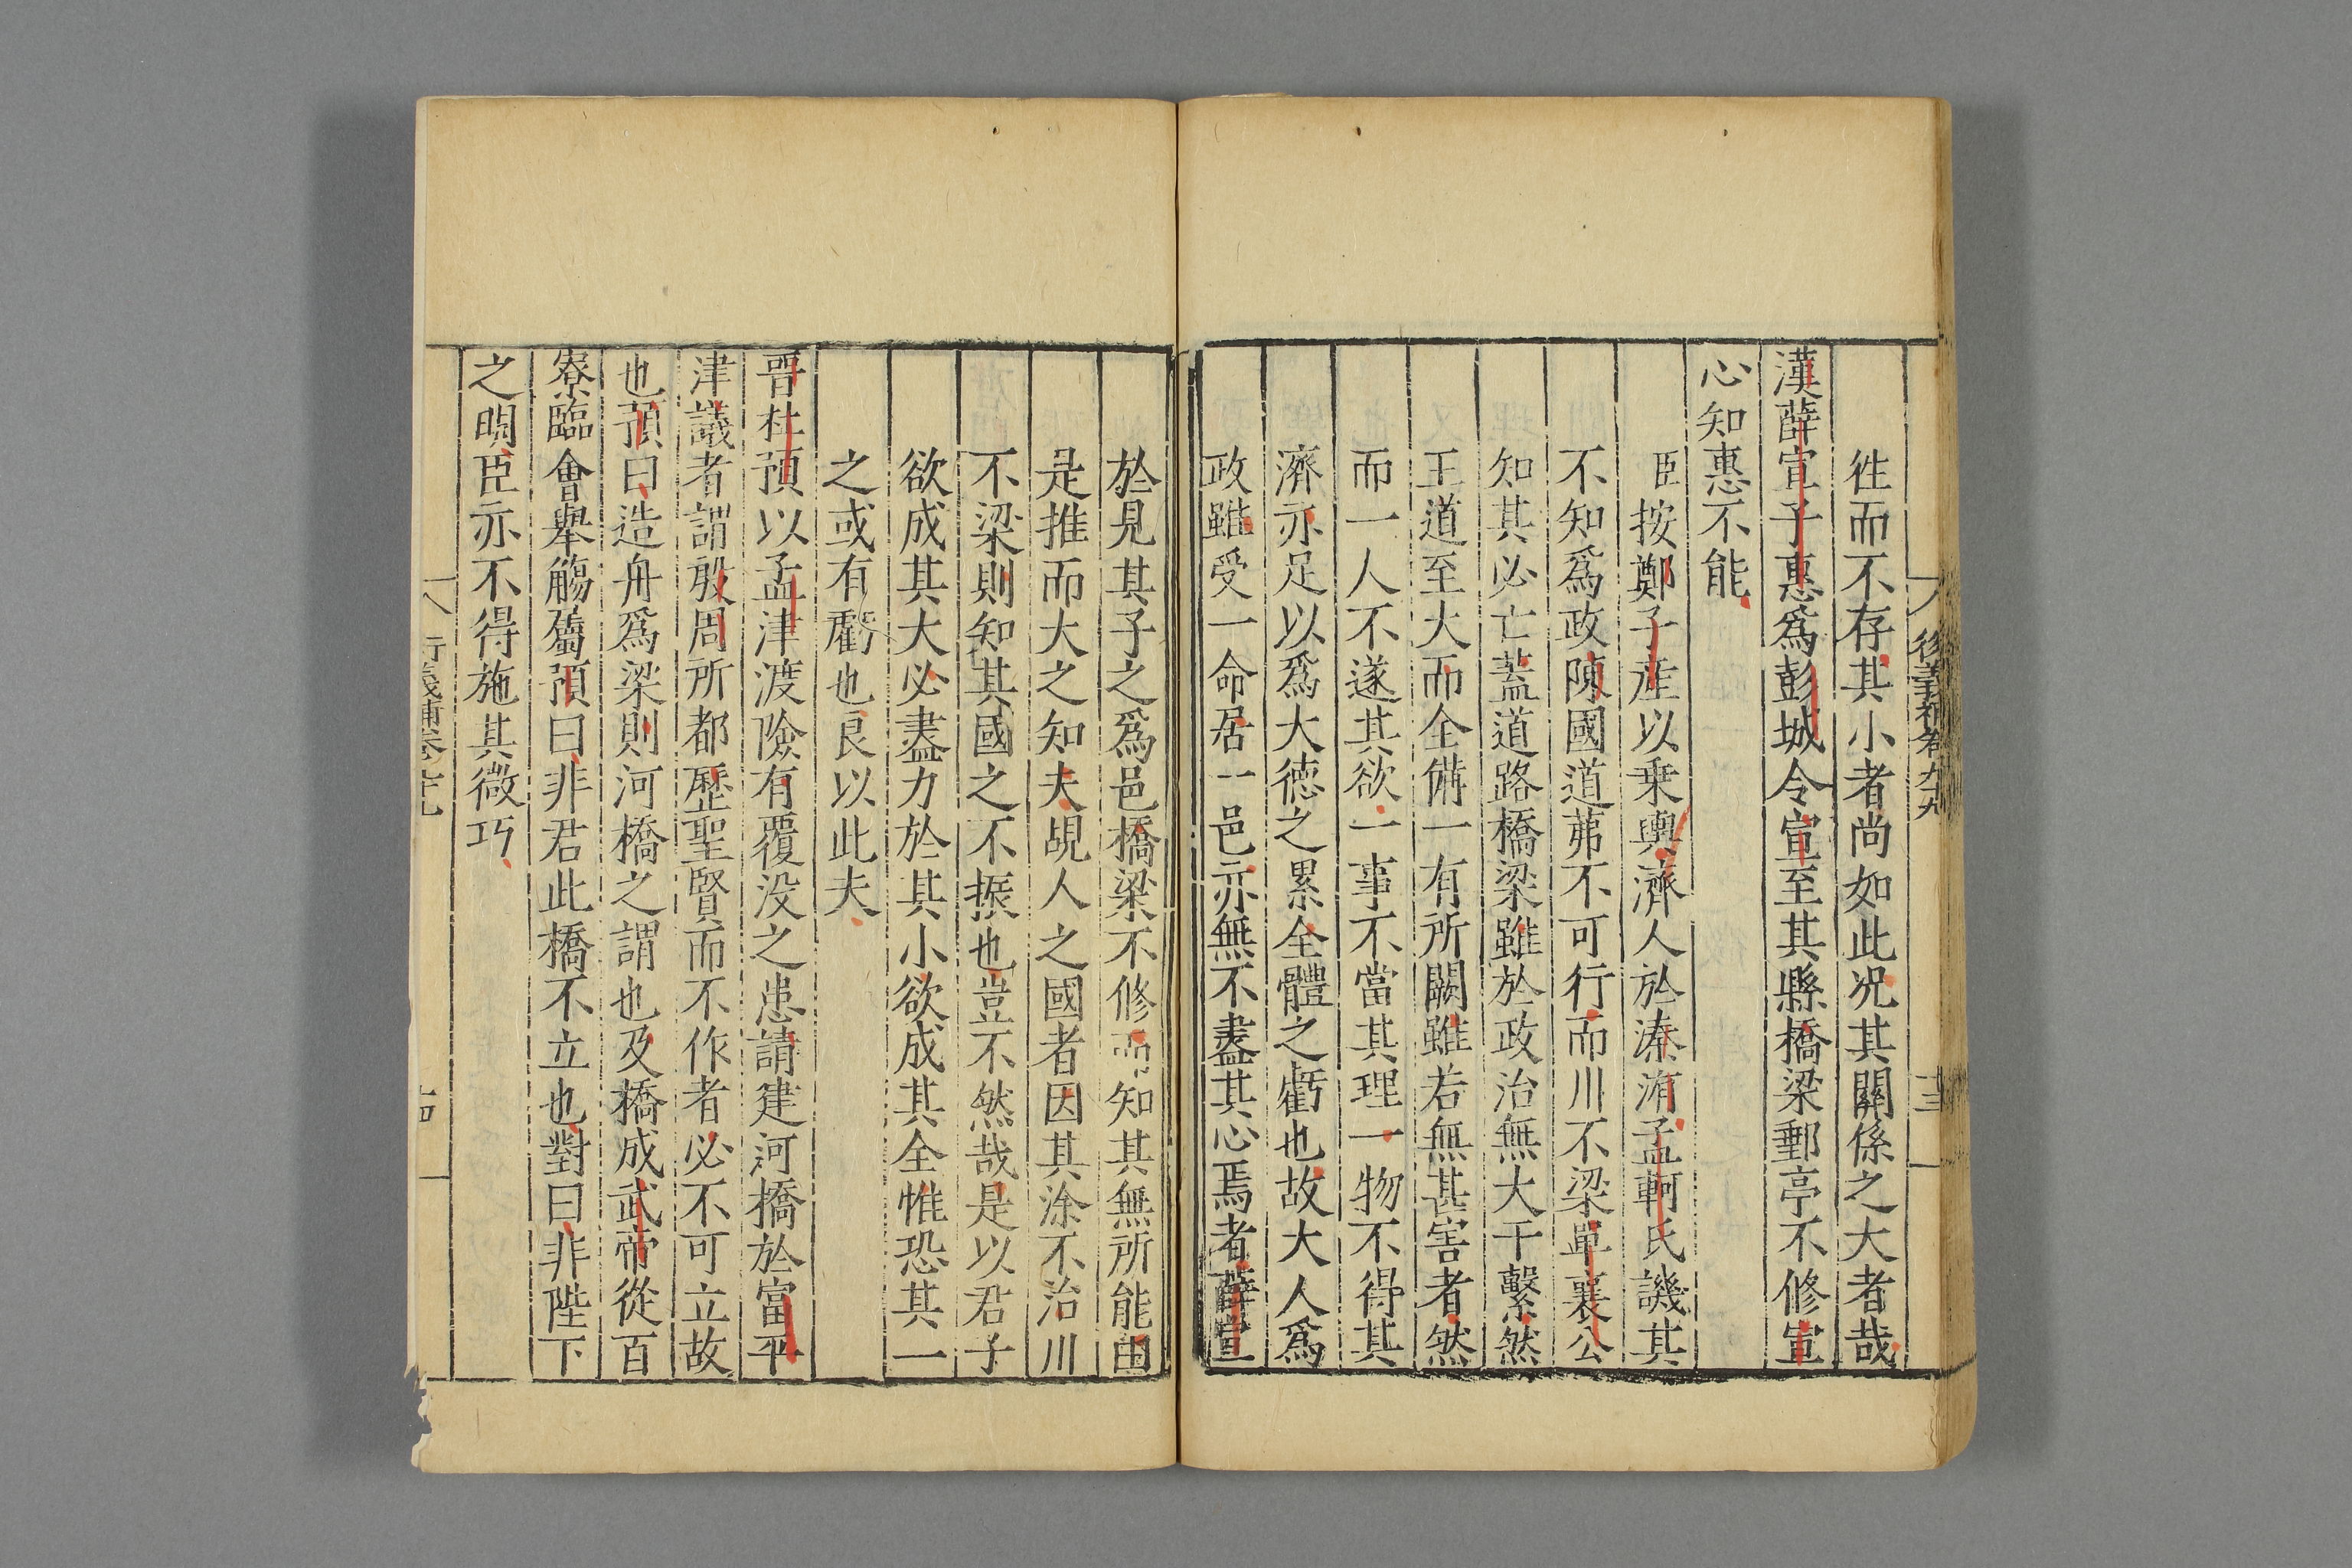 徃而不存其小者尚如此况其關係之大者哉
漢薛宣子惠爲彭城令宣至其縣橋梁郵亭不修宣
心知惠不能
臣按鄭子産以乗輿濟人於溱洧孟軻氏譏其
不知爲政陳國道茀不可行而川不梁單襄公
知其必亡蓋道路橋梁雖於政治無大干繫然
王道至大而全備一有所闕雖若無甚害者然
而一人不遂其欲一事不當其理一物不得其
濟亦足以爲大德之累全體之虧也故大人爲
政雖受一命居一邑亦無不盡其心焉者薛宣
於見其子之爲邑橋梁不修而知其無所能由
是推而大之知夫覘人之國者因其涂不治川
不梁則知其國之不振也豈不然哉是以君子
欲成其大必盡力於其小欲成其全惟恐其一
之或有虧也良以此夫
晉杜預以孟津渡險有覆没之患請建河橋於富平
津議者謂殷周所都歷聖賢而不作者必不可立故
也預曰造舟爲梁則河橋之謂也及橋成武帝從百
寮臨會舉觴屬預曰非君此橋不立也對曰非陛下
之明臣亦不得施其微巧